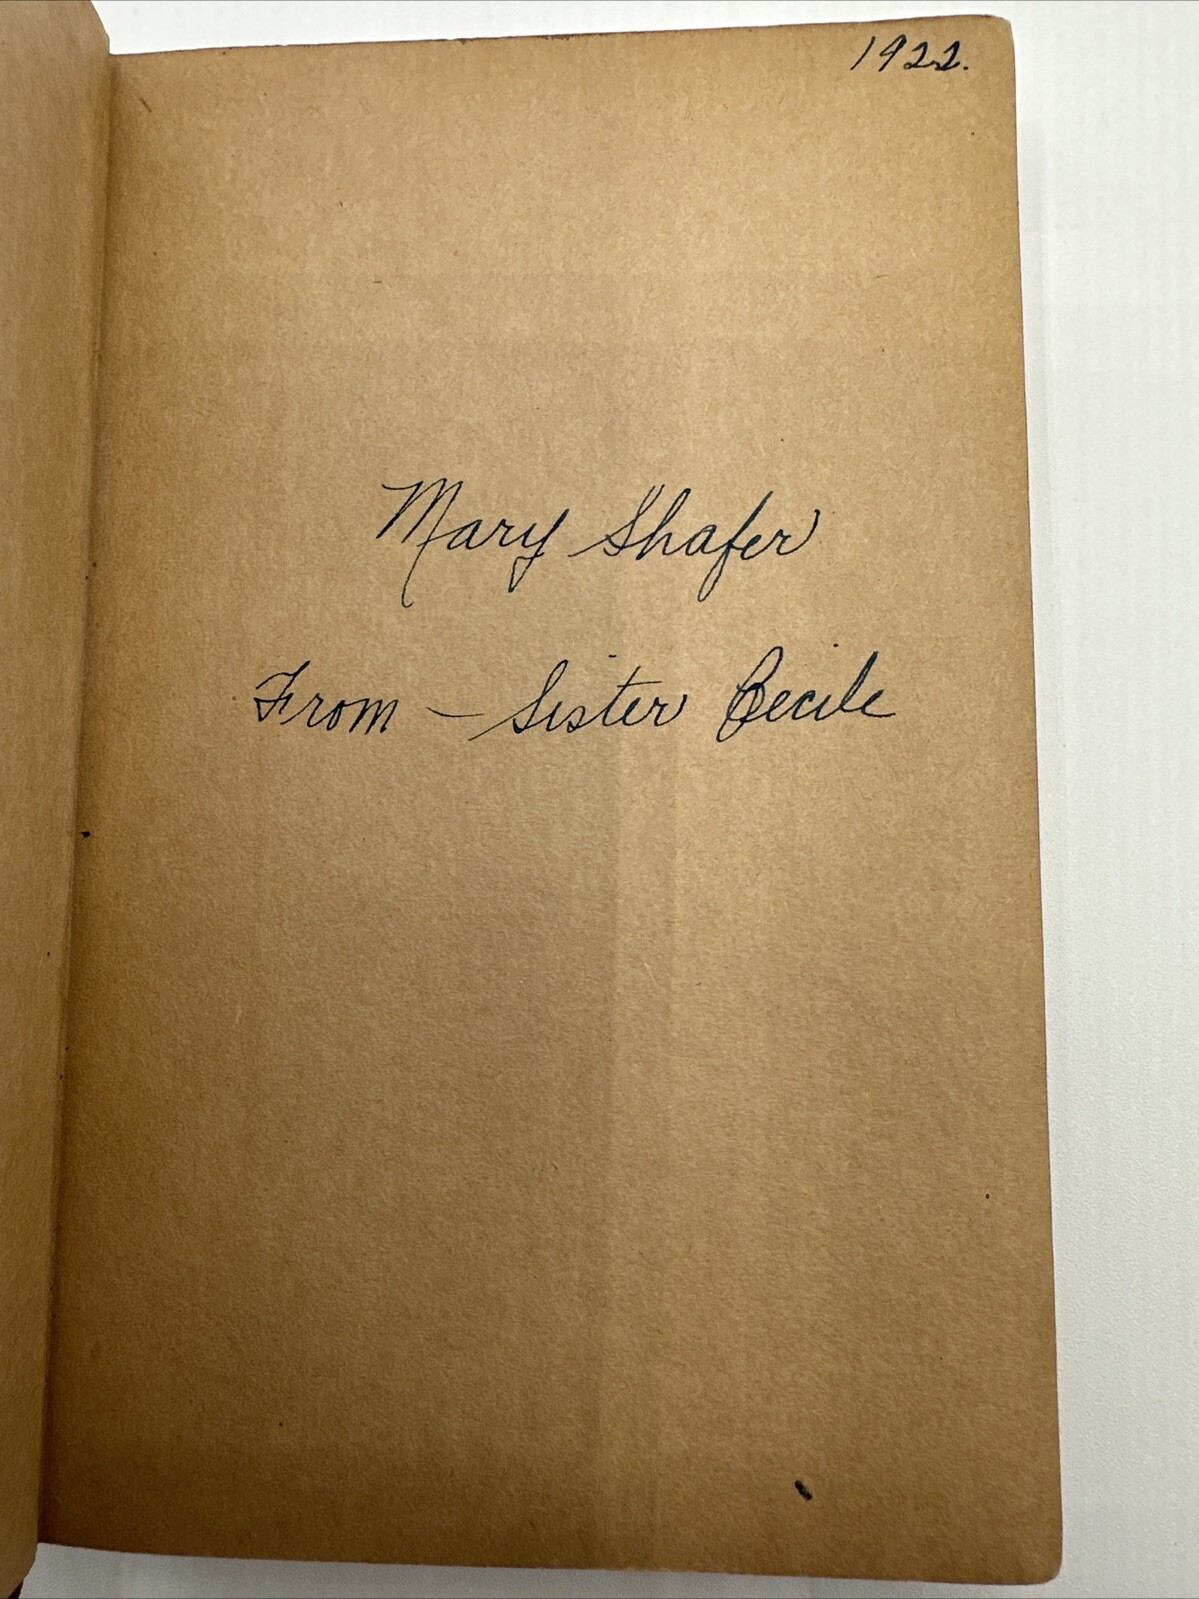 1922.
Mary Shafer
From — Sister Cecile